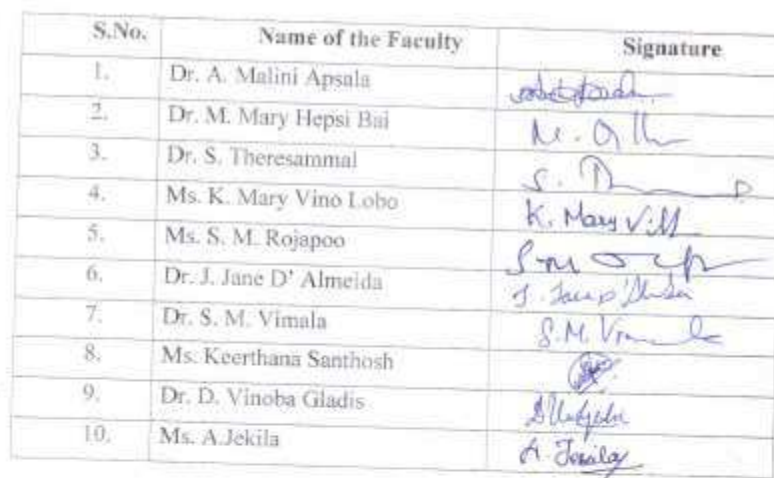 S.No. Name of the Faculty Signature
1. Dr. A. Malini Apsala
2. Dr. M. Mary Hepsi Bai M.
3. Dr. S. Theresammal S.
4. Ms. K. Mary Vino Lobo K. Mary
5. Ms. S. M. Rojapoo S.M
6. Dr. J. Jane D' Almeida J.
7. Dr. S. M. Vimala S.M.
8. Ms. Keerthana Santhosh
9. Dr. D. Vinoba Gladis
10. Ms. A.Jekila A.